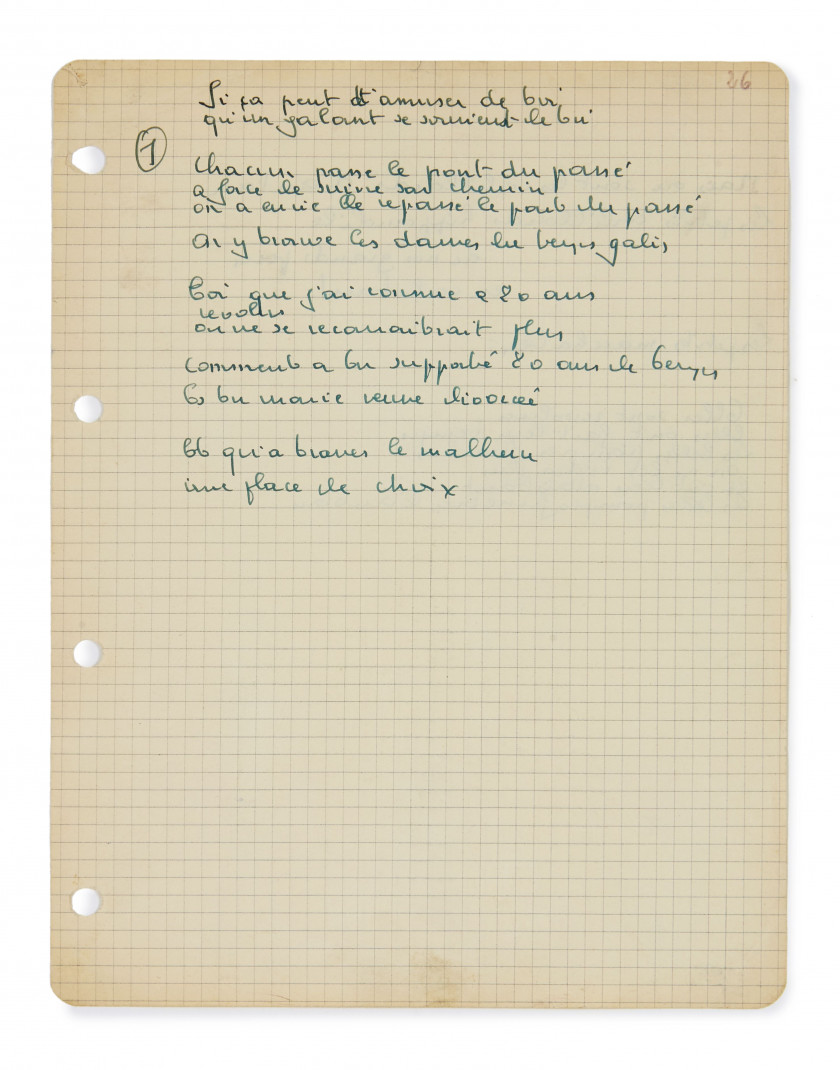 26
Si ça peut t'amuser de toi
qu'un galant se souvient de toi
1
Chacun passe le pont du passé
a force de suivre son chemin
on a envie de repassé le pont du passé
On y trouve les dames du temps jadis
Toi que j'ai connue a 20 ans
revolus
on ne se reconnaitrait plus
comment a tu supporté 20 ans de temps
Es tu marié veuve divorcé
qui a travers le malheur
une place de choix